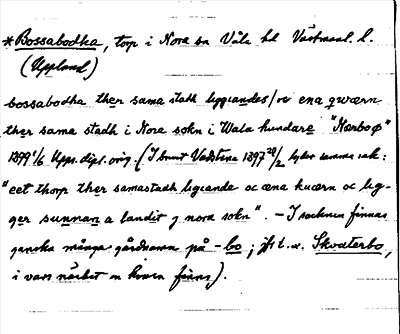 *Bossabodha, torp i Nora sn Våla hd Västmanl. l.
(Uppland)
bossabodha ther sama stadh liggiandes / oc ena qwærn
ther sama stadh i Nora sokn i Wala hundare "Kærboø"
1399 1/6 Upps. dipl. orig. (I brevet Vadstena 1397 20/2 lyder samma sak:
"eet thorp ther samastadh ligiande oc æna kuærn oc lig-
ger sunnan a landit j nora sokn". – I socknen finnas
ganska många gårdnamn på -bo; jfr t. ex. Skvaterbo,
i vars närhet en kvarn finns).